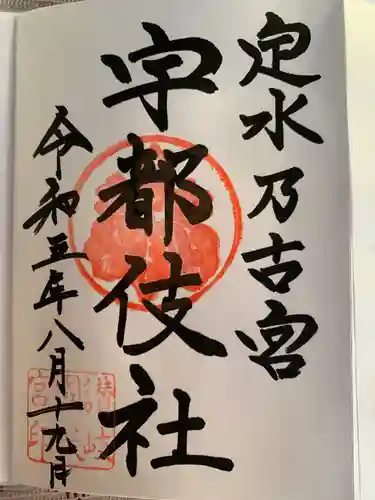 定水乃古宮
宇都伎社
令和五年八月十九日